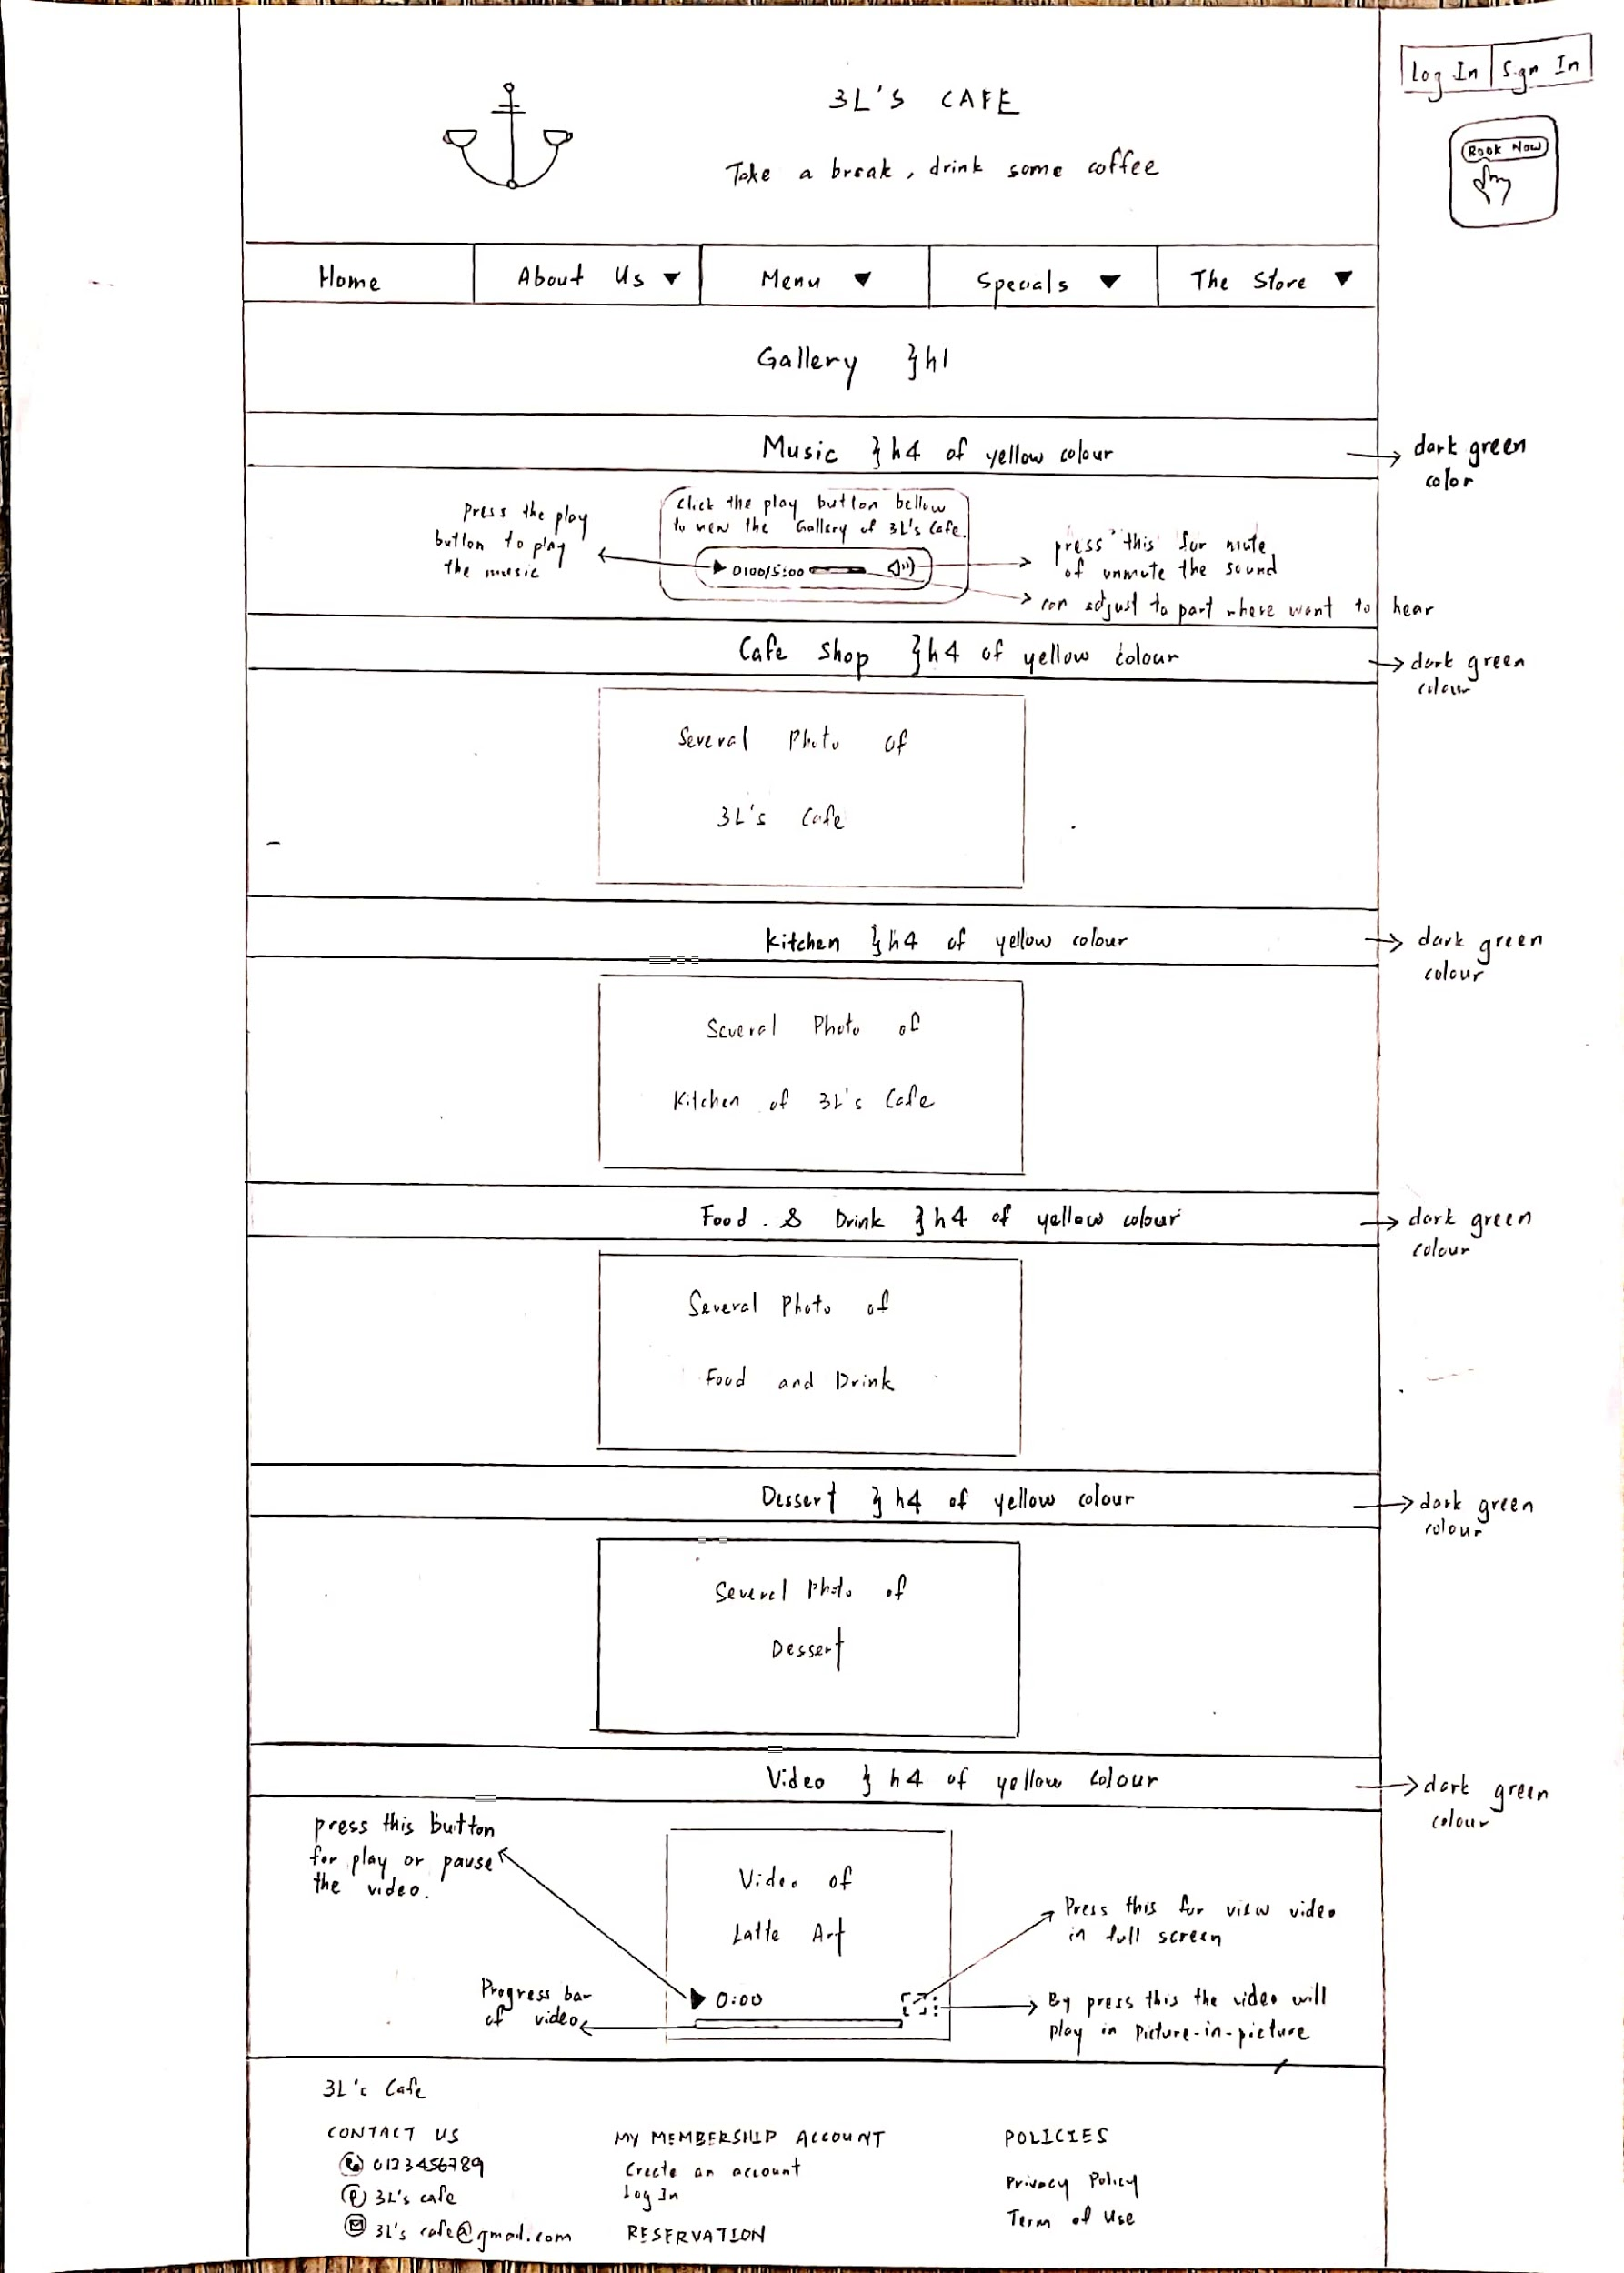 Log In Sign In
3L'S CAFE
Book Now
Take a break, drink some coffee
Home About Us ▼ Menu ▼ Specials ▼ The Store ▼
Gallery } h1
Music } h4 of yellow colour
dark green
color
press the play
button to play
the music
Click the play button bellow
to view the Gallery of 3L's Cafe.
0:00/5:00
press this for mute
of unmute the sound
can adjust to part where want to hear
Cafe Shop } h4 of yellow colour
dark green
colour
Several Photo of
3L's Cafe
Kitchen } h4 of yellow colour
dark green
colour
Several Photo of
Kitchen of 3L's Cafe
Food & Drink } h4 of yellow colour
dark green
colour
Several Photo of
Food and Drink
Dessert } h4 of yellow colour
dark green
colour
Several Photo of
Dessert
Video } h4 of yellow colour
dark green
colour
press this button
for play or pause
the video.
Video of
Latte Art
Press this for view video
in full screen
0:00
Progress bar
of video
By press this the video will
play in picture-in-picture
3L's Cafe
CONTACT US
0123456789
3L's cafe
3L's cafe@gmail.com
MY MEMBERSHIP ACCOUNT
Create an account
Log In
RESERVATION
POLICIES
Privacy Policy
Term of Use